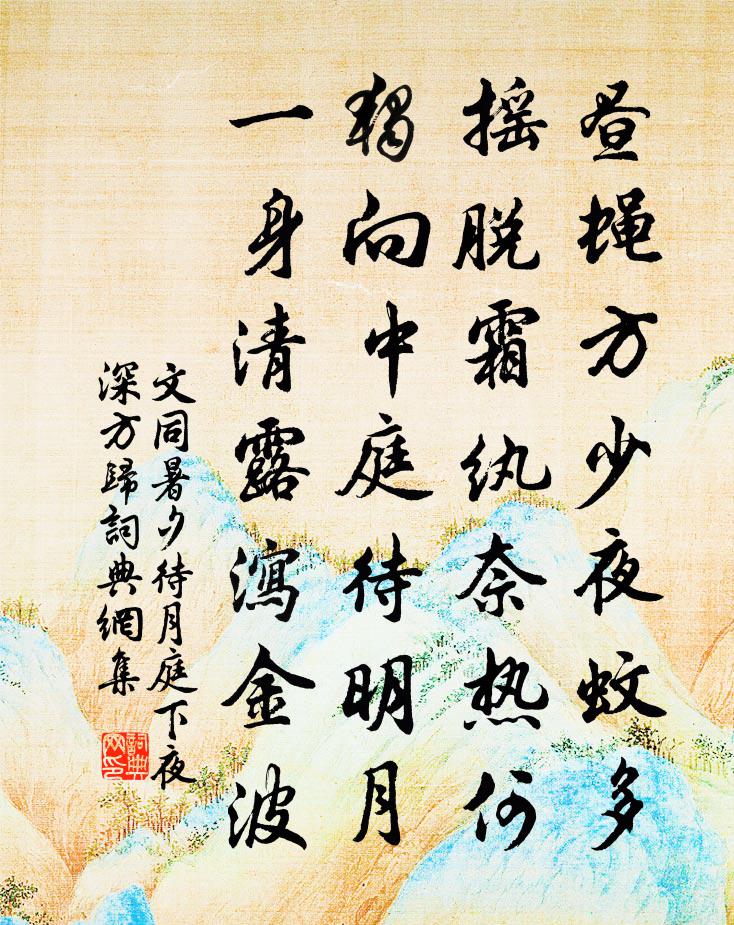 昼蝇方少夜蚊多
摇脱霜纨奈热何
独向中庭待明月
一身清露泻金波
文同暑夕待月庭下夜
深方歸詞典網集
詞典
网印